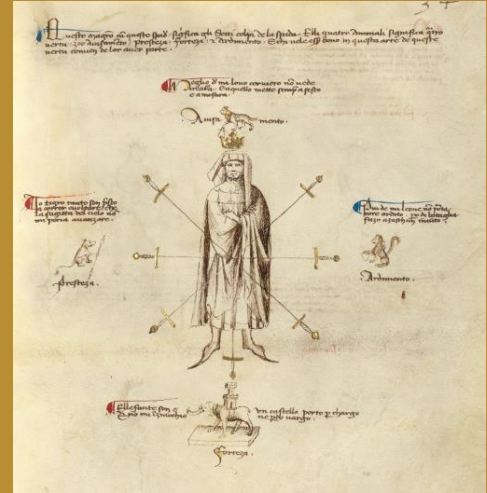 Questo magro cū queste spade significa gli Setti colpi de la spada. Elli quatro animali significa quatro
vertu, zoe avisamēto, Presteza, Forteza, e Ardimento. E chi vole esser bono in questa arte de queste
vertu convē de lor aver parte.
Meglio d mi lovo cerviero nō vede
creatura. E aquello mette sempre a sesto
e a misura.
Avisa mento.
Yo tigro tanto son presto
a correr e voltare, che
la sagitta del cielo nō
me poria avanzare.
Presteza.
Piu de mi leone nō porta
core ardito, però de bataglia
fazo a zaschun invito.
Ardimento.
Ellefante son e un castello porto per chargho
E nō mi inzinochio ne perdo vargo.
Forteza.